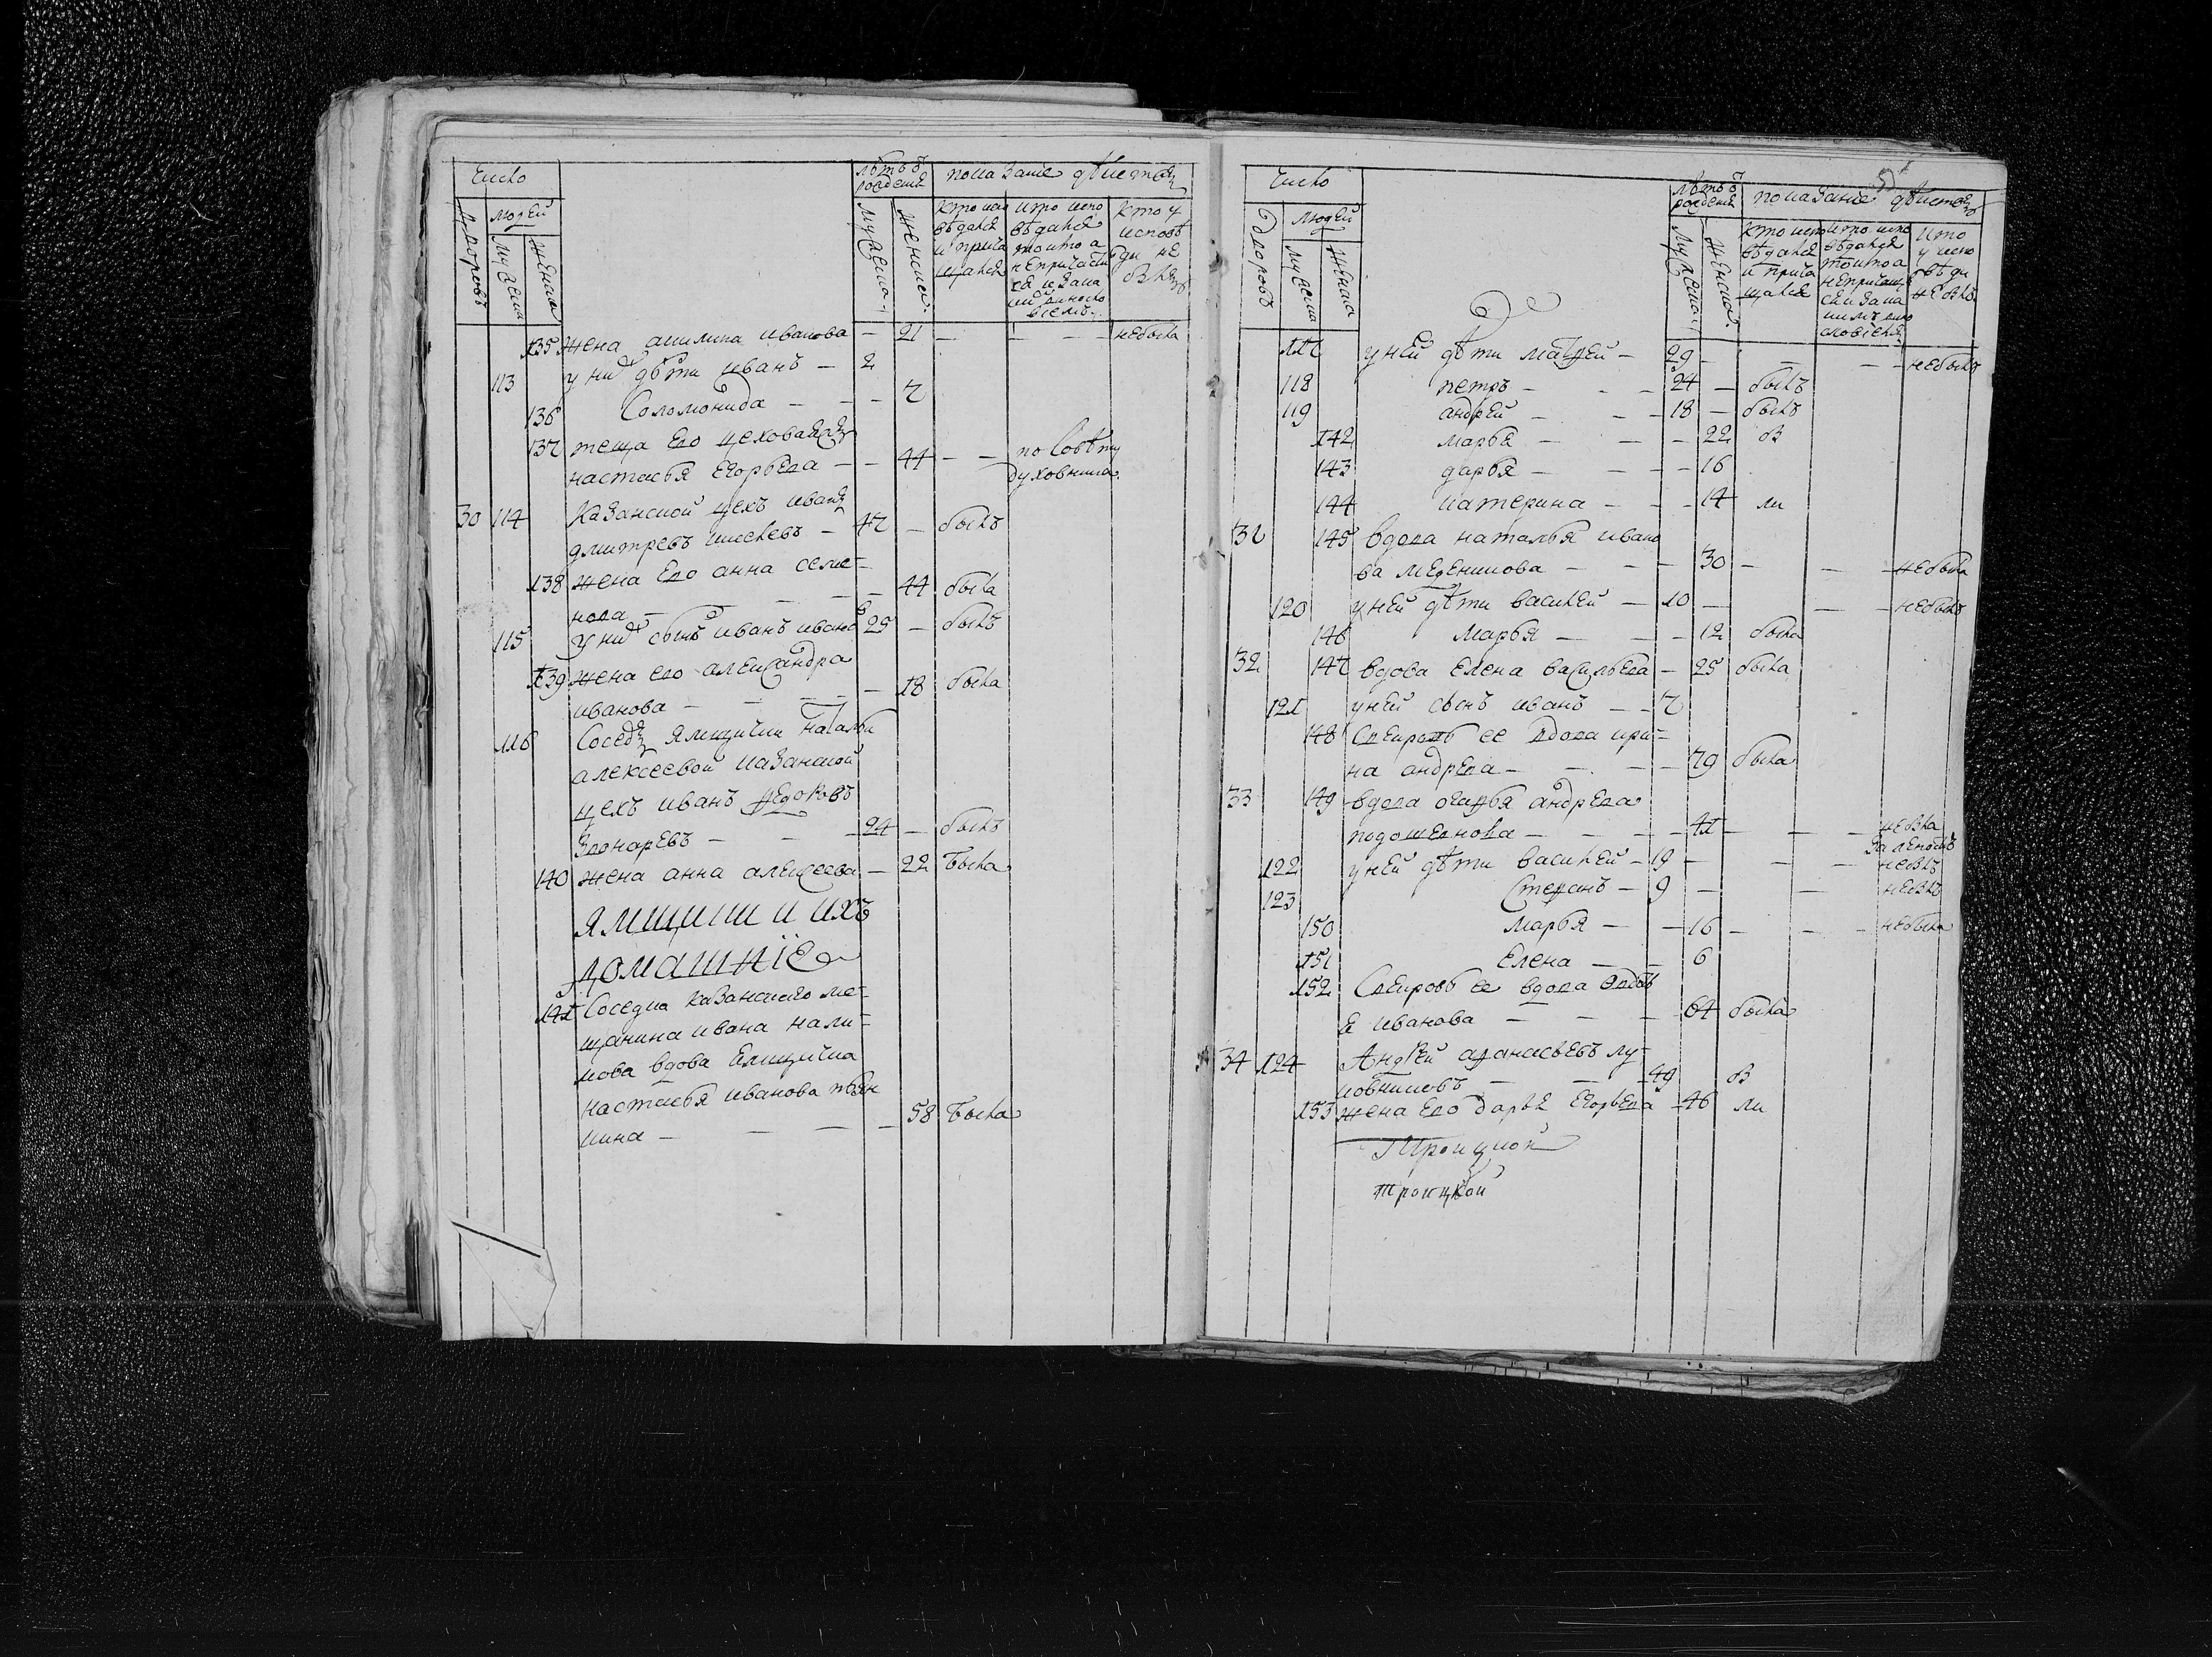 Число
лѣтъ ѿ рожденія
показаніе дѣйствъ
дворовъ
людей
мужеска
женска
мужеска
женска
кто испо
вѣдался
и прича
щался
кто испо
вѣдался
токмо а
не причасти
ся и за ка
кимъ виносло
віемъ
кто у
исповѣ
ди не
былъ
135 жена акилина иванова — 21 — — — небыла
113 у них дѣти иванъ — 2
136 Соломонида — — — 7
137 теща его цеховая
настасья егорьева — — 44 — — по совѣту
духовника
30 114 казанской цехъ иванъ
дмитревъ — 47 — былъ
138 жена его анна семе-
нова — — — — 44 была
115 у них сынъ иванъ ивано 25 — былъ
139 жена его александра
иванова — — — — 18 была
116 Соседъ ямщички натальи
алексеевой казанской
цехъ иванъ федоровъ
звонаревъ — — — 24 — былъ
140 жена анна алексеева — 22 была
ямщики и ихъ
домашніе
141 Соседка казанскаго ме-
щанина ивана нали-
мова вдова ямщичка
настасья иванова
кина — — — — 58 была
Число
лѣтъ ѿ рожденія
показаніе дѣйствъ
дворовъ
людей
мужеска
женска
мужеска
женска
кто испо
вѣдался
и прича
щался
кто испо
вѣдался
токмо а
не причащ
ся и за ка
кимъ вино
словіемъ
кто
у испо
вѣди
не былъ
117 у ней дѣти матфей — 29 — — — небылъ
118 петръ — — — 24 — былъ
119 андрей — — — 18 — былъ
142 марья — — — 22 бы
143 дарья — — — 16
144 катерина — — — 14 ли
31 145 вдова наталья ивано
ва меденикова — — — 30 — — — небыла
120 у ней дѣти василей — 10 — — — небылъ
146 марья — — — 12 была
32 147 вдова елена васильева — 25 была
121 у ней сынъ иванъ — — 7
148 Свекровь ее вдова ири-
на андрева — — — — 79 была
33 149 вдова андрева
подошевнова — — — — 41 — — — небыла
за леностъ
122 у ней дѣти василей — 19 — — — небылъ
123 Стефанъ — 9 — — небылъ
150 марья — — 16 — — — небыла
151 елена — — 6
152 Свекровь ее вдова
иванова — — — 64 была
34 124 Андрей афанасьевъ лу-
ковниковъ — — — 49 бы
153 жена его дарья егорьева — 46 ли
Троицкой
троицкой